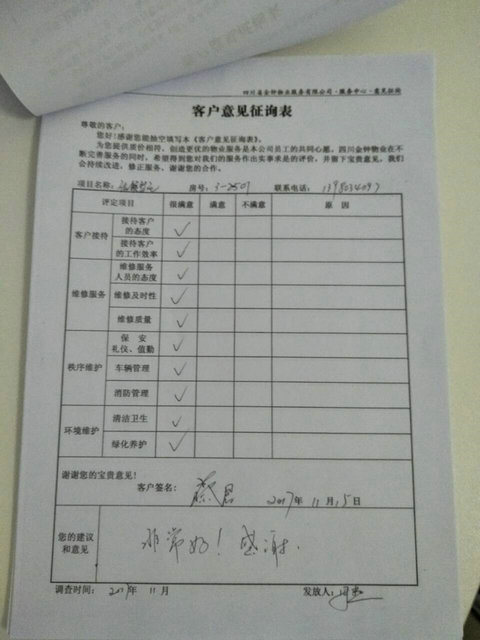 四川省金钟物业服务有限公司·服务中心·意见征询
客户意见征询表
尊敬的客户：
您好!感谢您能抽空填写本《客户意见征询表》。
为您提供质价相符，创造更优的物业服务是本公司员工的共同心愿，四川金钟物业在不
断完善服务的同时，希望得到您对我们的服务作出实事求是的评价，并留下宝贵意见，我们
会持续改进，修正服务、谢谢您的合作。
项目名称： 房号：3-2501 联系电话：
评定项目 很满意 满意 不满意 原因
客户接待 接待客户的态度 ✓
接待客户的工作效率 ✓
维修服务 维修服务人员的态度 ✓
维修及时性 ✓
维修质量 ✓
秩序维护 保安礼仪、值勤 ✓
车辆管理 ✓
消防管理 ✓
环境维护 清洁卫生 ✓
绿化养护 ✓
谢谢您的宝贵意见!
客户签名： 2017年11月15日
您的建议和意见 非常好！感谢.
调查时间：2017年11月 发放人：